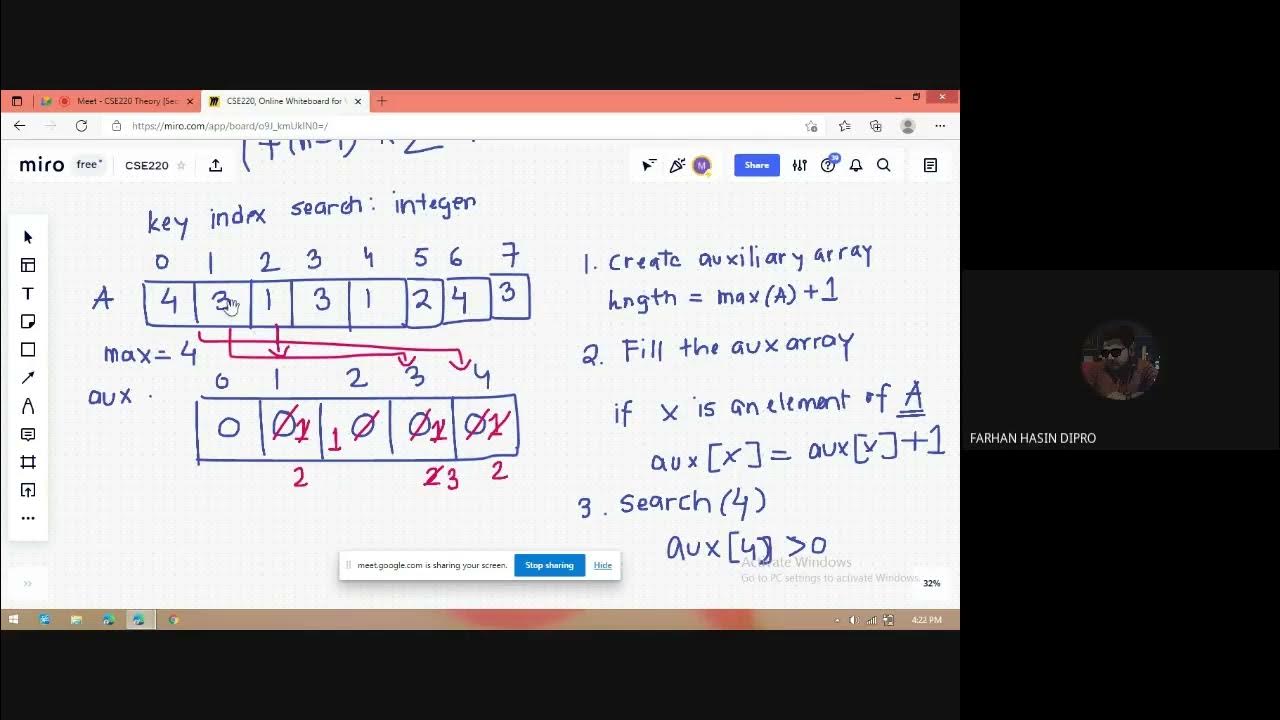 Meet - CSE220 Theory [Sec
CSE220, Online Whiteboard for V
https://miro.com/app/board/o9J_kmUkIN0=/
miro free CSE220
Share
key index search: integer
0 1 2 3 4 5 6 7
A 4 3 1 3 1 2 4 3
max = 4
0 1 2 3 4
aux
0 0 1 1 0 0 1 0 1
2 2 3 2
1. Create auxiliary array
length = max(A) + 1
2. Fill the aux array
if x is an element of A
aux[x] = aux[x] + 1
3. Search(4)
aux[4] > 0
meet.google.com is sharing your screen. Stop sharing Hide
Activate Windows
Go to PC settings to activate Windows.
32%
4:22 PM
FARHAN HASIN DIPRO